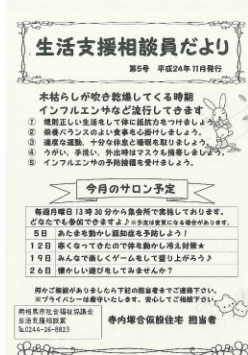 生活支援相談員だより
第5号 平成24年11月発行
木枯らしが吹き乾燥してくる時期
インフルエンザなど流行してきます
① 規則正しい生活をして体に抵抗力をつけましょう。
② 栄養バランスのよい食事を心掛けましょう。
③ 適度な運動、十分な休息と睡眠を取りましょう。
④ うがい、手洗い、外出時はマスクも携帯しましょう。
⑤ インフルエンザの予防接種を受けましょう。
今月のサロン予定
毎週月曜日13時30分から集会所で実施しております。
どなたでも参加できますよ♪※予定は変更になる場合があります。
5日 あたまを動かし認知症を予防しよう!
12日 寒くなってきたので体も動かし冷え対策★
19日 みんなで楽しくゲームをして盛り上がろう♪
26日 懐かしい遊びをしてみませんか?
何かご相談がありましたら下記の担当者までご連絡下さい。
※プライバシーは厳守いたします。安心してご相談下さい。
南相馬市社会福祉協議会
生活支援相談室
℡0244-26-8823
寺内塚合仮設住宅 担当者